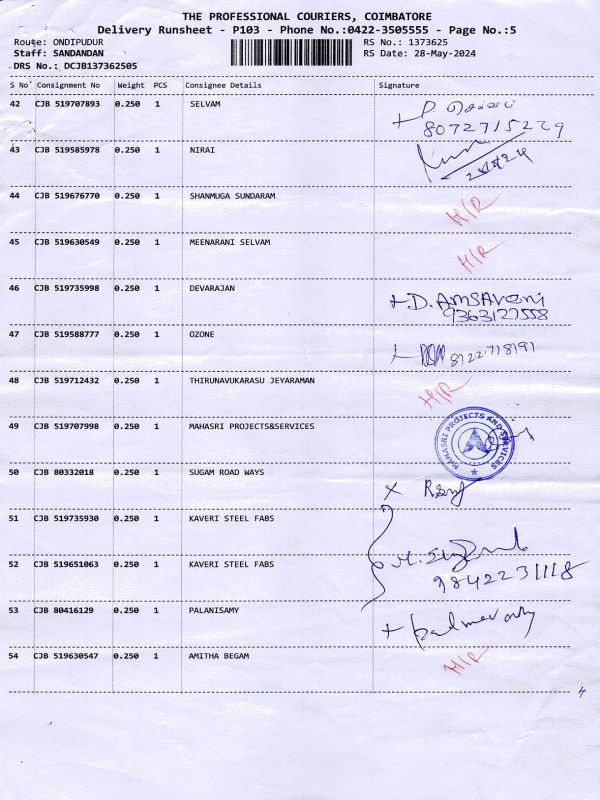 THE PROFESSIONAL COURIERS, COIMBATORE
Delivery Runsheet - P103 - Phone No.:0422-3505555 - Page No.:5
Route: ONDIPUDUR RS No.: 1373625
Staff: SANDANDAN RS Date: 28-May-2024
DRS No.: DCJB137362505
S No Consignment No Weight PCS Consignee Details Signature
42 CJB 519707893 0.250 1 SELVAM
8072715229
43 CJB 519585978 0.250 1 NIRAI
44 CJB 519676770 0.250 1 SHANMUGA SUNDARAM H/R
45 CJB 519630549 0.250 1 MEENARANI SELVAM H/R
46 CJB 519735998 0.250 1 DEVARAJAN D. AMSAveni
9363127558
47 CJB 519588777 0.250 1 OZONE 8122718191
48 CJB 519712432 0.250 1 THIRUNAVUKARASU JEYARAMAN H/R
49 CJB 519707998 0.250 1 MAHASRI PROJECTS&SERVICES MAHASRI PROJECTS AND SERVICES
50 CJB 80332018 0.250 1 SUGAM ROAD WAYS
51 CJB 519735930 0.250 1 KAVERI STEEL FABS
52 CJB 519651063 0.250 1 KAVERI STEEL FABS
9842231118
53 CJB 80416129 0.250 1 PALANISAMY
54 CJB 519630547 0.250 1 AMITHA BEGAM H/R